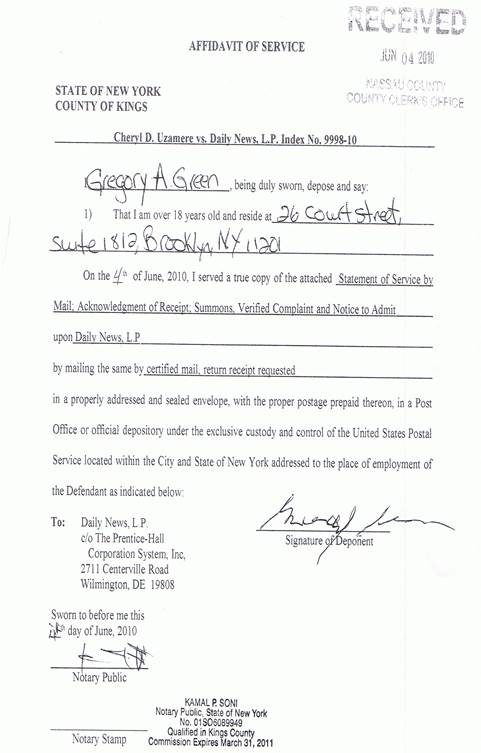 RECEIVED
JUN 04 2010
NASSAU COUNTY
COUNTY CLERK'S OFFICE
AFFIDAVIT OF SERVICE
STATE OF NEW YORK
COUNTY OF KINGS
Cheryl D. Uzamere vs. Daily News, L.P. Index No. 9998-10
Gregory A. Green, being duly sworn, depose and say:
1) That I am over 18 years old and reside at 26 Court Street,
Suite 1812, Brooklyn, NY 11201
On the 4th of June, 2010, I served a true copy of the attached Statement of Service by
Mail; Acknowledgment of Receipt; Summons, Verified Complaint and Notice to Admit
upon Daily News, L.P
by mailing the same by certified mail, return receipt requested
in a properly addressed and sealed envelope, with the proper postage prepaid thereon, in a Post
Office or official depository under the exclusive custody and control of the United States Postal
Service located within the City and State of New York addressed to the place of employment of
the Defendant as indicated below:
To: Daily News, L.P.
c/o The Prentice-Hall
Corporation System, Inc,
2711 Centerville Road
Wilmington, DE 19808
Signature of Deponent
Sworn to before me this
4th day of June, 2010
Notary Public
KAMAL P. SONI
Notary Public, State of New York
No. 01SO6089949
Qualified in Kings County
Commission Expires March 31, 2011
Notary Stamp